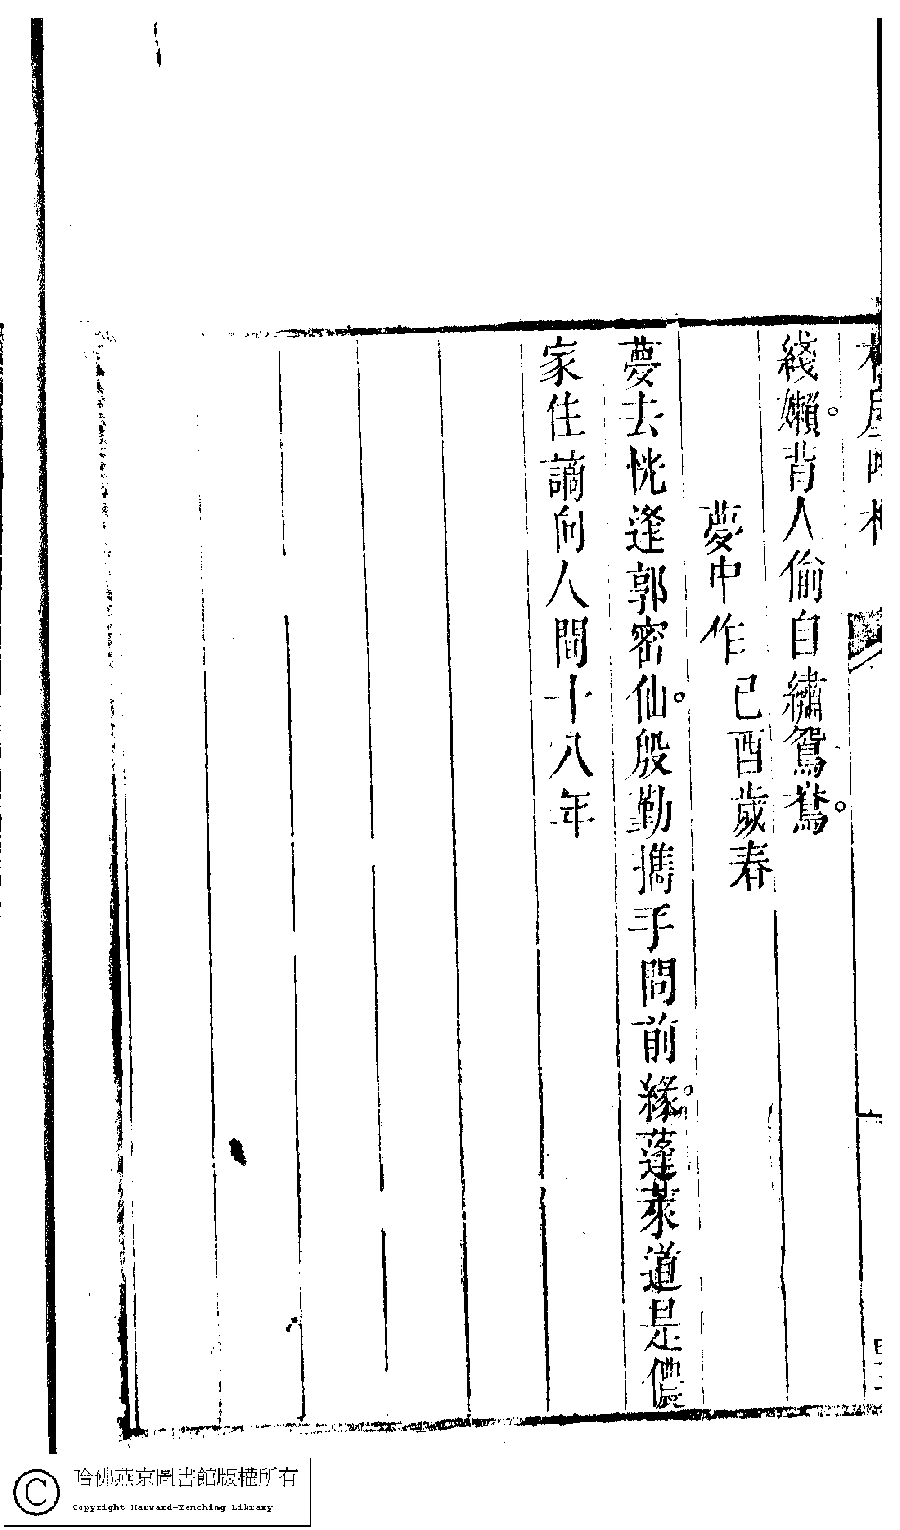 綫嬾。背人偷自繡鴛鴦。
夢中作 己酉歲春
夢去恍逢郭密仙。殷勤攜手問前緣。蓬萊道是儂
家住謫向人間十八年
哈佛燕京圖書館版權所有
Copyright Harvard-Yenching Library